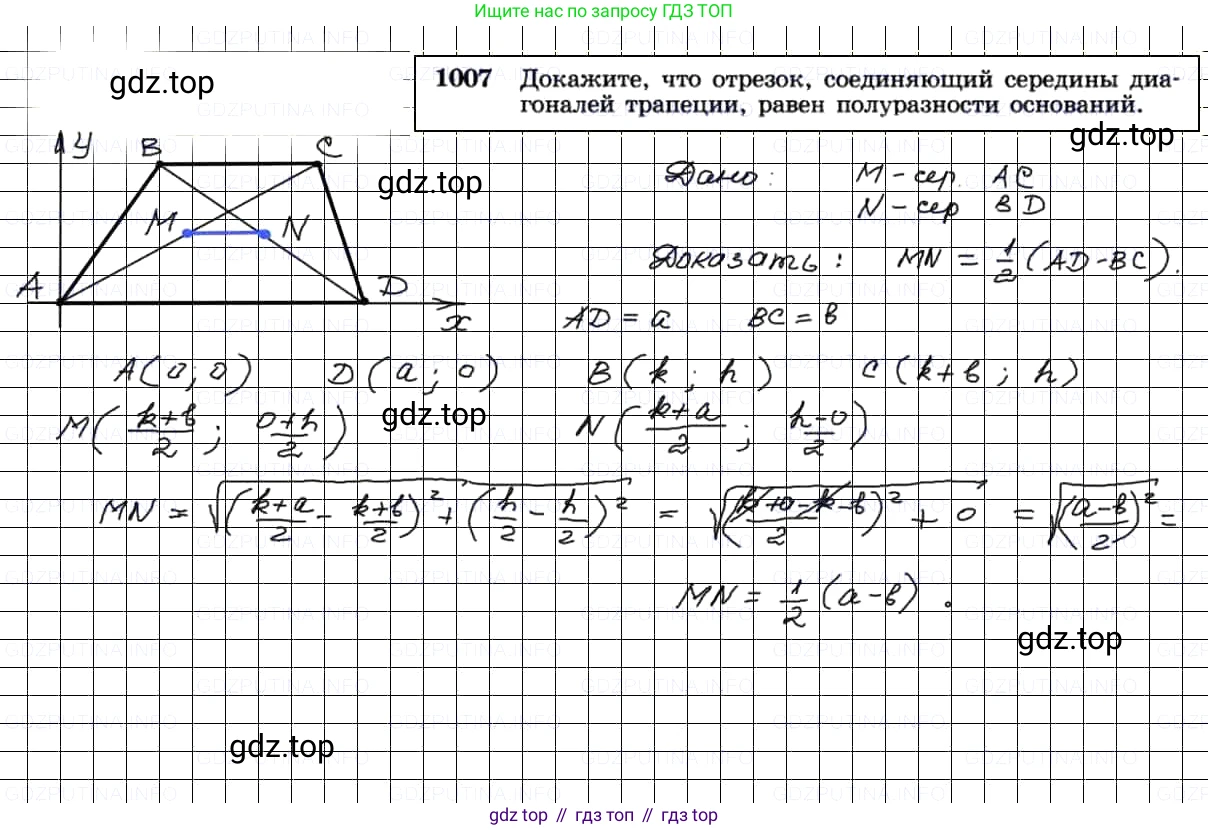 Ищите нас по запросу ГДЗ ТОП
gdz.top
1007 Докажите, что отрезок, соединяющий середины диа-
гоналей трапеции, равен полуразности оснований.
gdz.top
y B C
gdz.top
Дано: M - сер. AC
N - сер BD
M N
Доказать: MN = 1/2 (AD - BC).
A D
x
AD = a BC = b
A(0; 0) D(a; 0) B(k; h) C(k+b; h)
gdz.top
M((k+b)/2; (0+h)/2) N((k+a)/2; (h-0)/2)
MN = √(((k+a)/2 - (k+b)/2)² + (h/2 - h/2)²) = √(((k+a-k-b)/2)² + 0) = √(((a-b)/2)²) =
MN = 1/2 (a-b).
gdz.top
gdz.top
gdz.top // гдз.top // гдз.top
GDZPUTINA.INFO